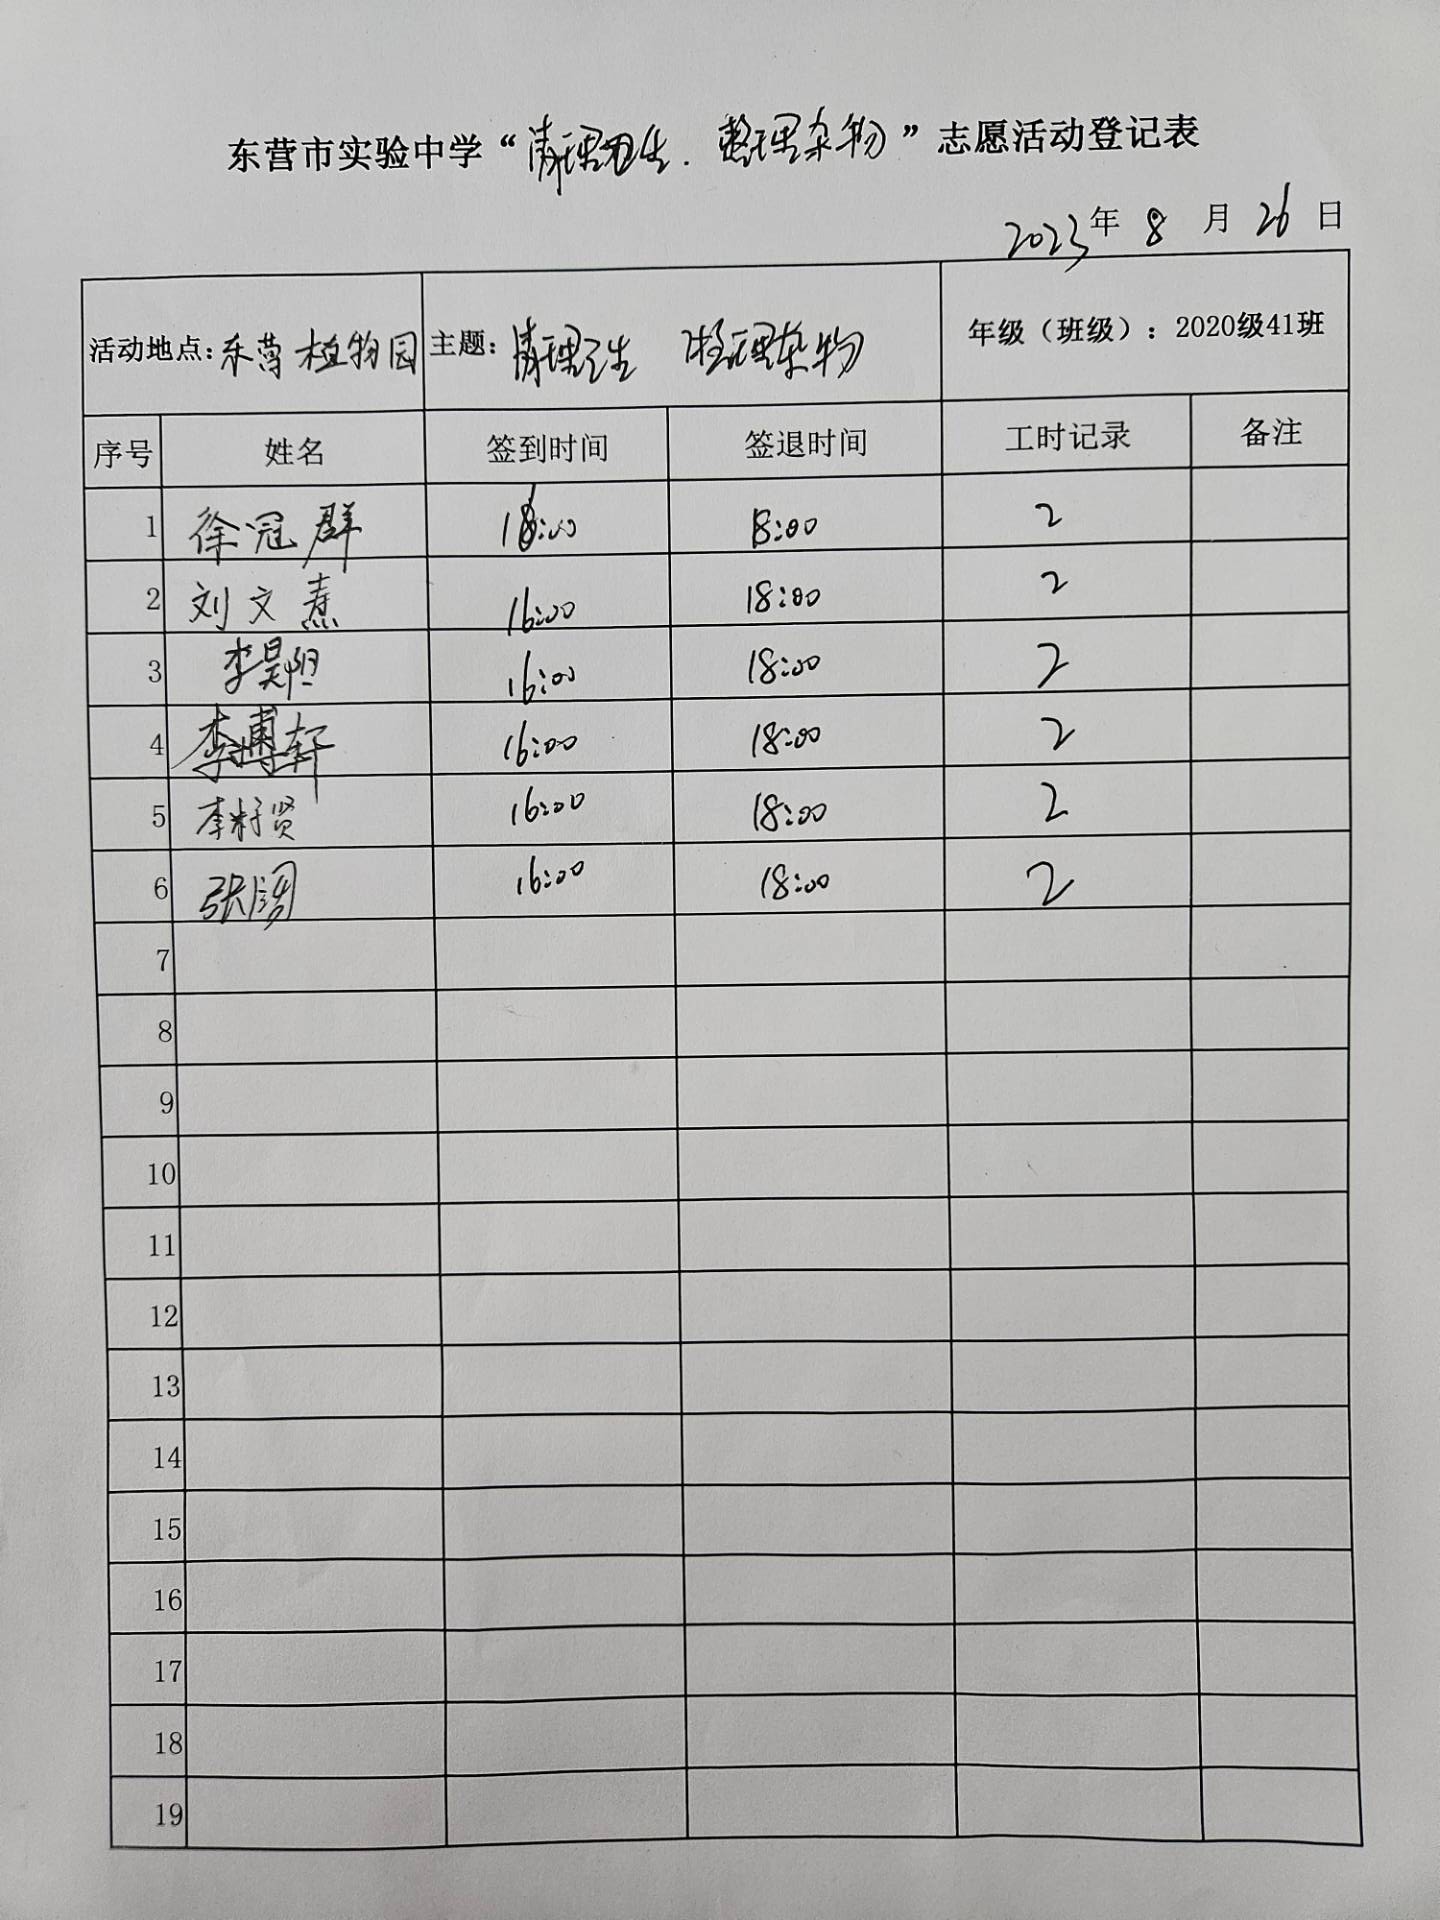 东营市实验中学“清理卫生.整理杂物”志愿活动登记表
2023年 8 月 26 日
活动地点:东营植物园 主题:清理卫生 整理杂物 年级（班级）: 2020级41班
序号 姓名 签到时间 签退时间 工时记录 备注
1 徐冠群 16:00 18:00 2
2 刘文熹 16:00 18:00 2
3 李昊阳 16:00 18:00 2
4 李博轩 16:00 18:00 2
5 李籽贤 16:00 18:00 2
6 张 16:00 18:00 2
7
8
9
10
11
12
13
14
15
16
17
18
19